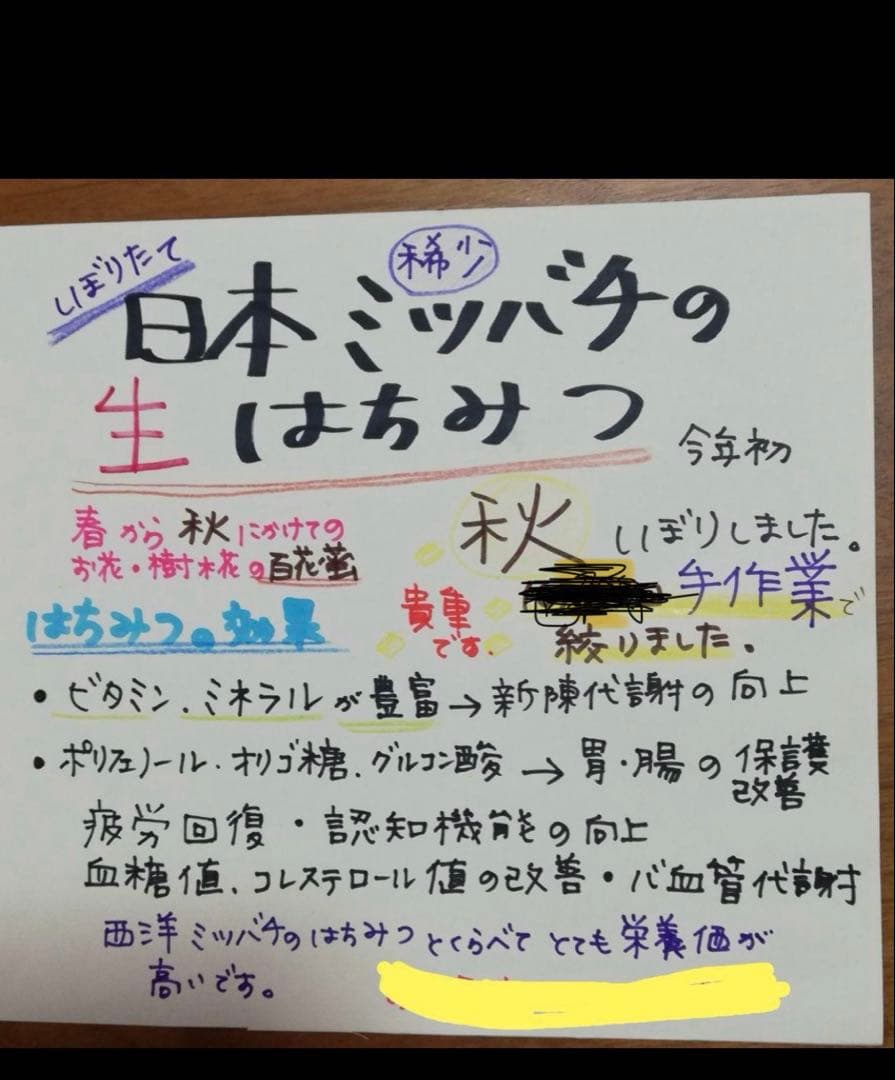 しぼりたて
稀少
日本ミツバチの
生はちみつ
今年初
秋しぼりしました。
春から秋にかけての
お花・樹木花の百花蜜
貴重
です.
手作業で
絞りました.
はちみつの効果
• ビタミン.ミネラルが豊富→新陳代謝の向上
• ポリフェノール.オリゴ糖.グルコン酸→胃・腸の保護
改善
疲労回復・認知機能の向上
血糖値.コレステロール値の改善・心血管代謝
西洋ミツバチのはちみつとくらべてとても栄養価が
高いです。